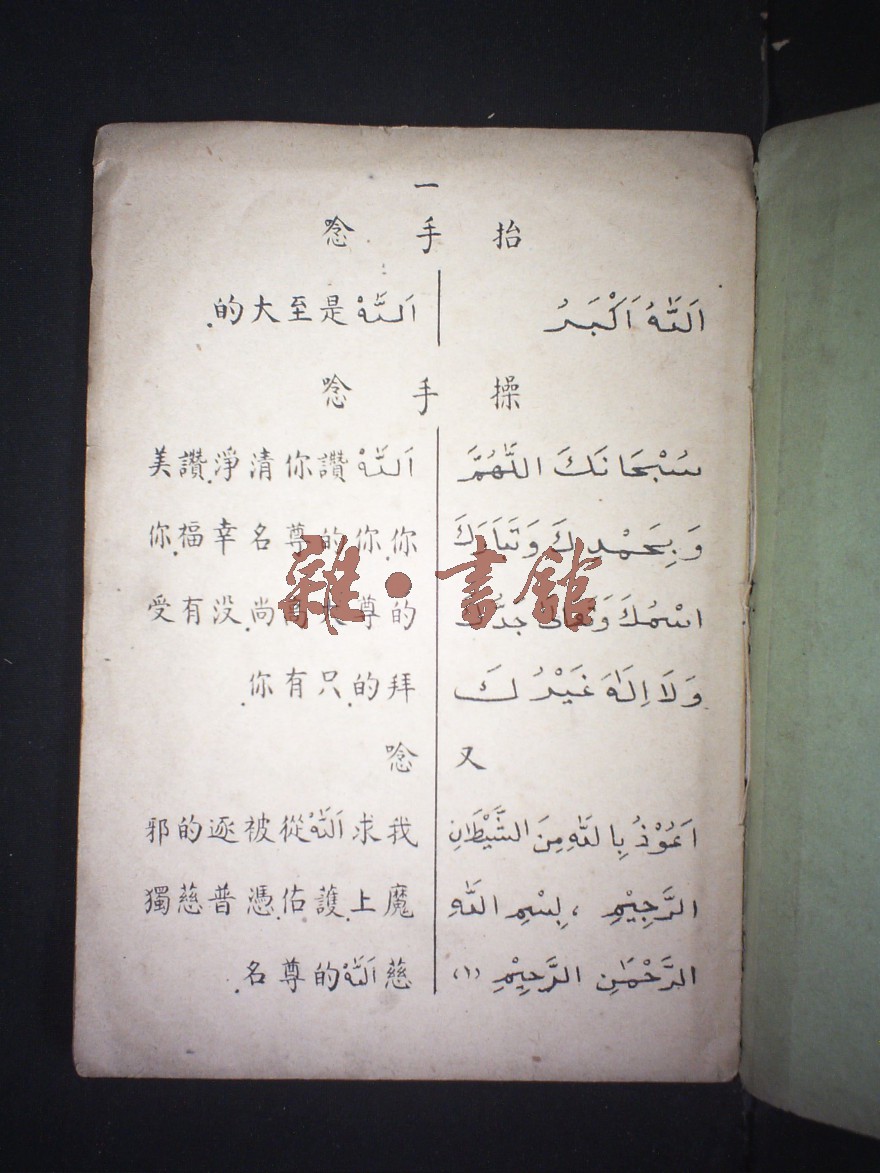 一
抬手唸
اَللّٰهُ اَكْبَرُ
اَللّٰهْ是至大的.
操手唸
سُبْحَانَكَ اللّٰهُمَّ
اَللّٰهْ讚你清淨.讚美
وَبِحَمْدِكَ وَتَبَارَكَ
你.你的尊名幸福.你
اسْمُكَ وَتَعَالَى جَدُّكَ
的尊大高尚.没有受
وَلَا اِلٰهَ غَيْرُكَ
拜的.只有你.
又唸
اَعُوْذُ بِاللّٰهِ مِنَ الشَّيْطَانِ
我求اَللّٰهْ從被逐的邪
الرَّجِيْمِ ، بِسْمِ اللّٰهِ
魔上.護佑.憑普慈獨
الرَّحْمٰنِ الرَّحِيْمِ (١)
慈اَللّٰهْ的尊名.
雜·書館